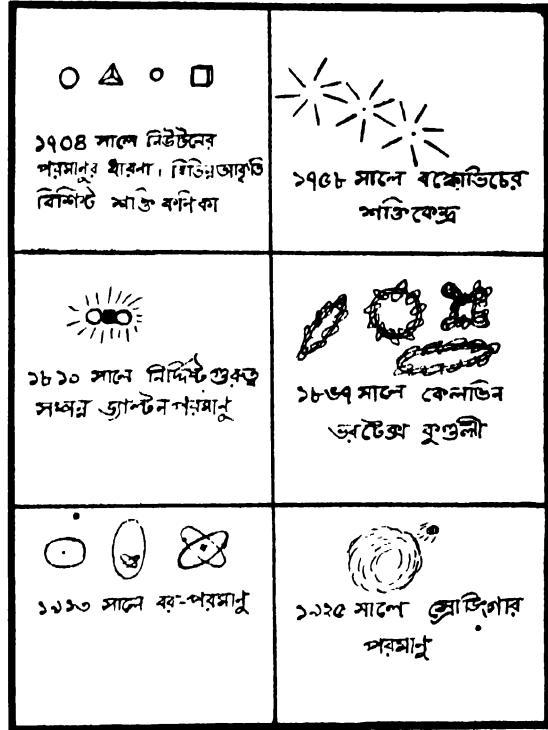 ১৭০৪ সালে নিউটনের
পরমানুর ধারনা। বিভিন্ন আকৃতি
বিশিষ্ট শক্তি কনিকা
১৭৫৮ সালে বস্কোভিচের
শক্তিকেন্দ্র
১৮১০ সালে নির্দ্দিষ্ট গুরুত্ব
সম্পন্ন ড্যাল্টন পরমানু
১৮৬৭ সালে কেলভিন
ভরটেক্স কুণ্ডলী
১৯১৩ সালে বর-পরমানু
১৯২৫ সালে স্রোডিংগার
পরমানু